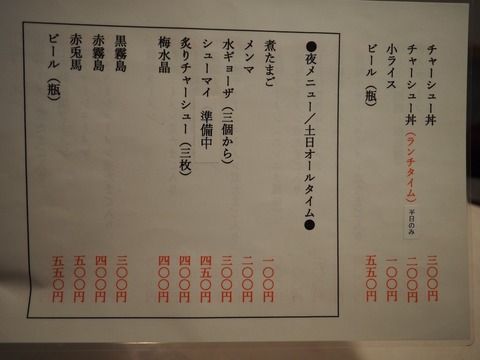 チャーシュー丼 三〇〇円
チャーシュー丼(ランチタイム) 平日のみ 二〇〇円
小ライス 一〇〇円
ビール(瓶) 五五〇円
●夜メニュー/土日オールタイム●
煮たまご 一〇〇円
メンマ 二〇〇円
水ギョーザ(三個から) 三〇〇円
シューマイ 準備中 四五〇円
炙りチャーシュー(三枚) 四〇〇円
梅水晶 四〇〇円
黒霧島 三〇〇円
赤霧島 四〇〇円
赤兎馬 五〇〇円
ビール(瓶) 五五〇円